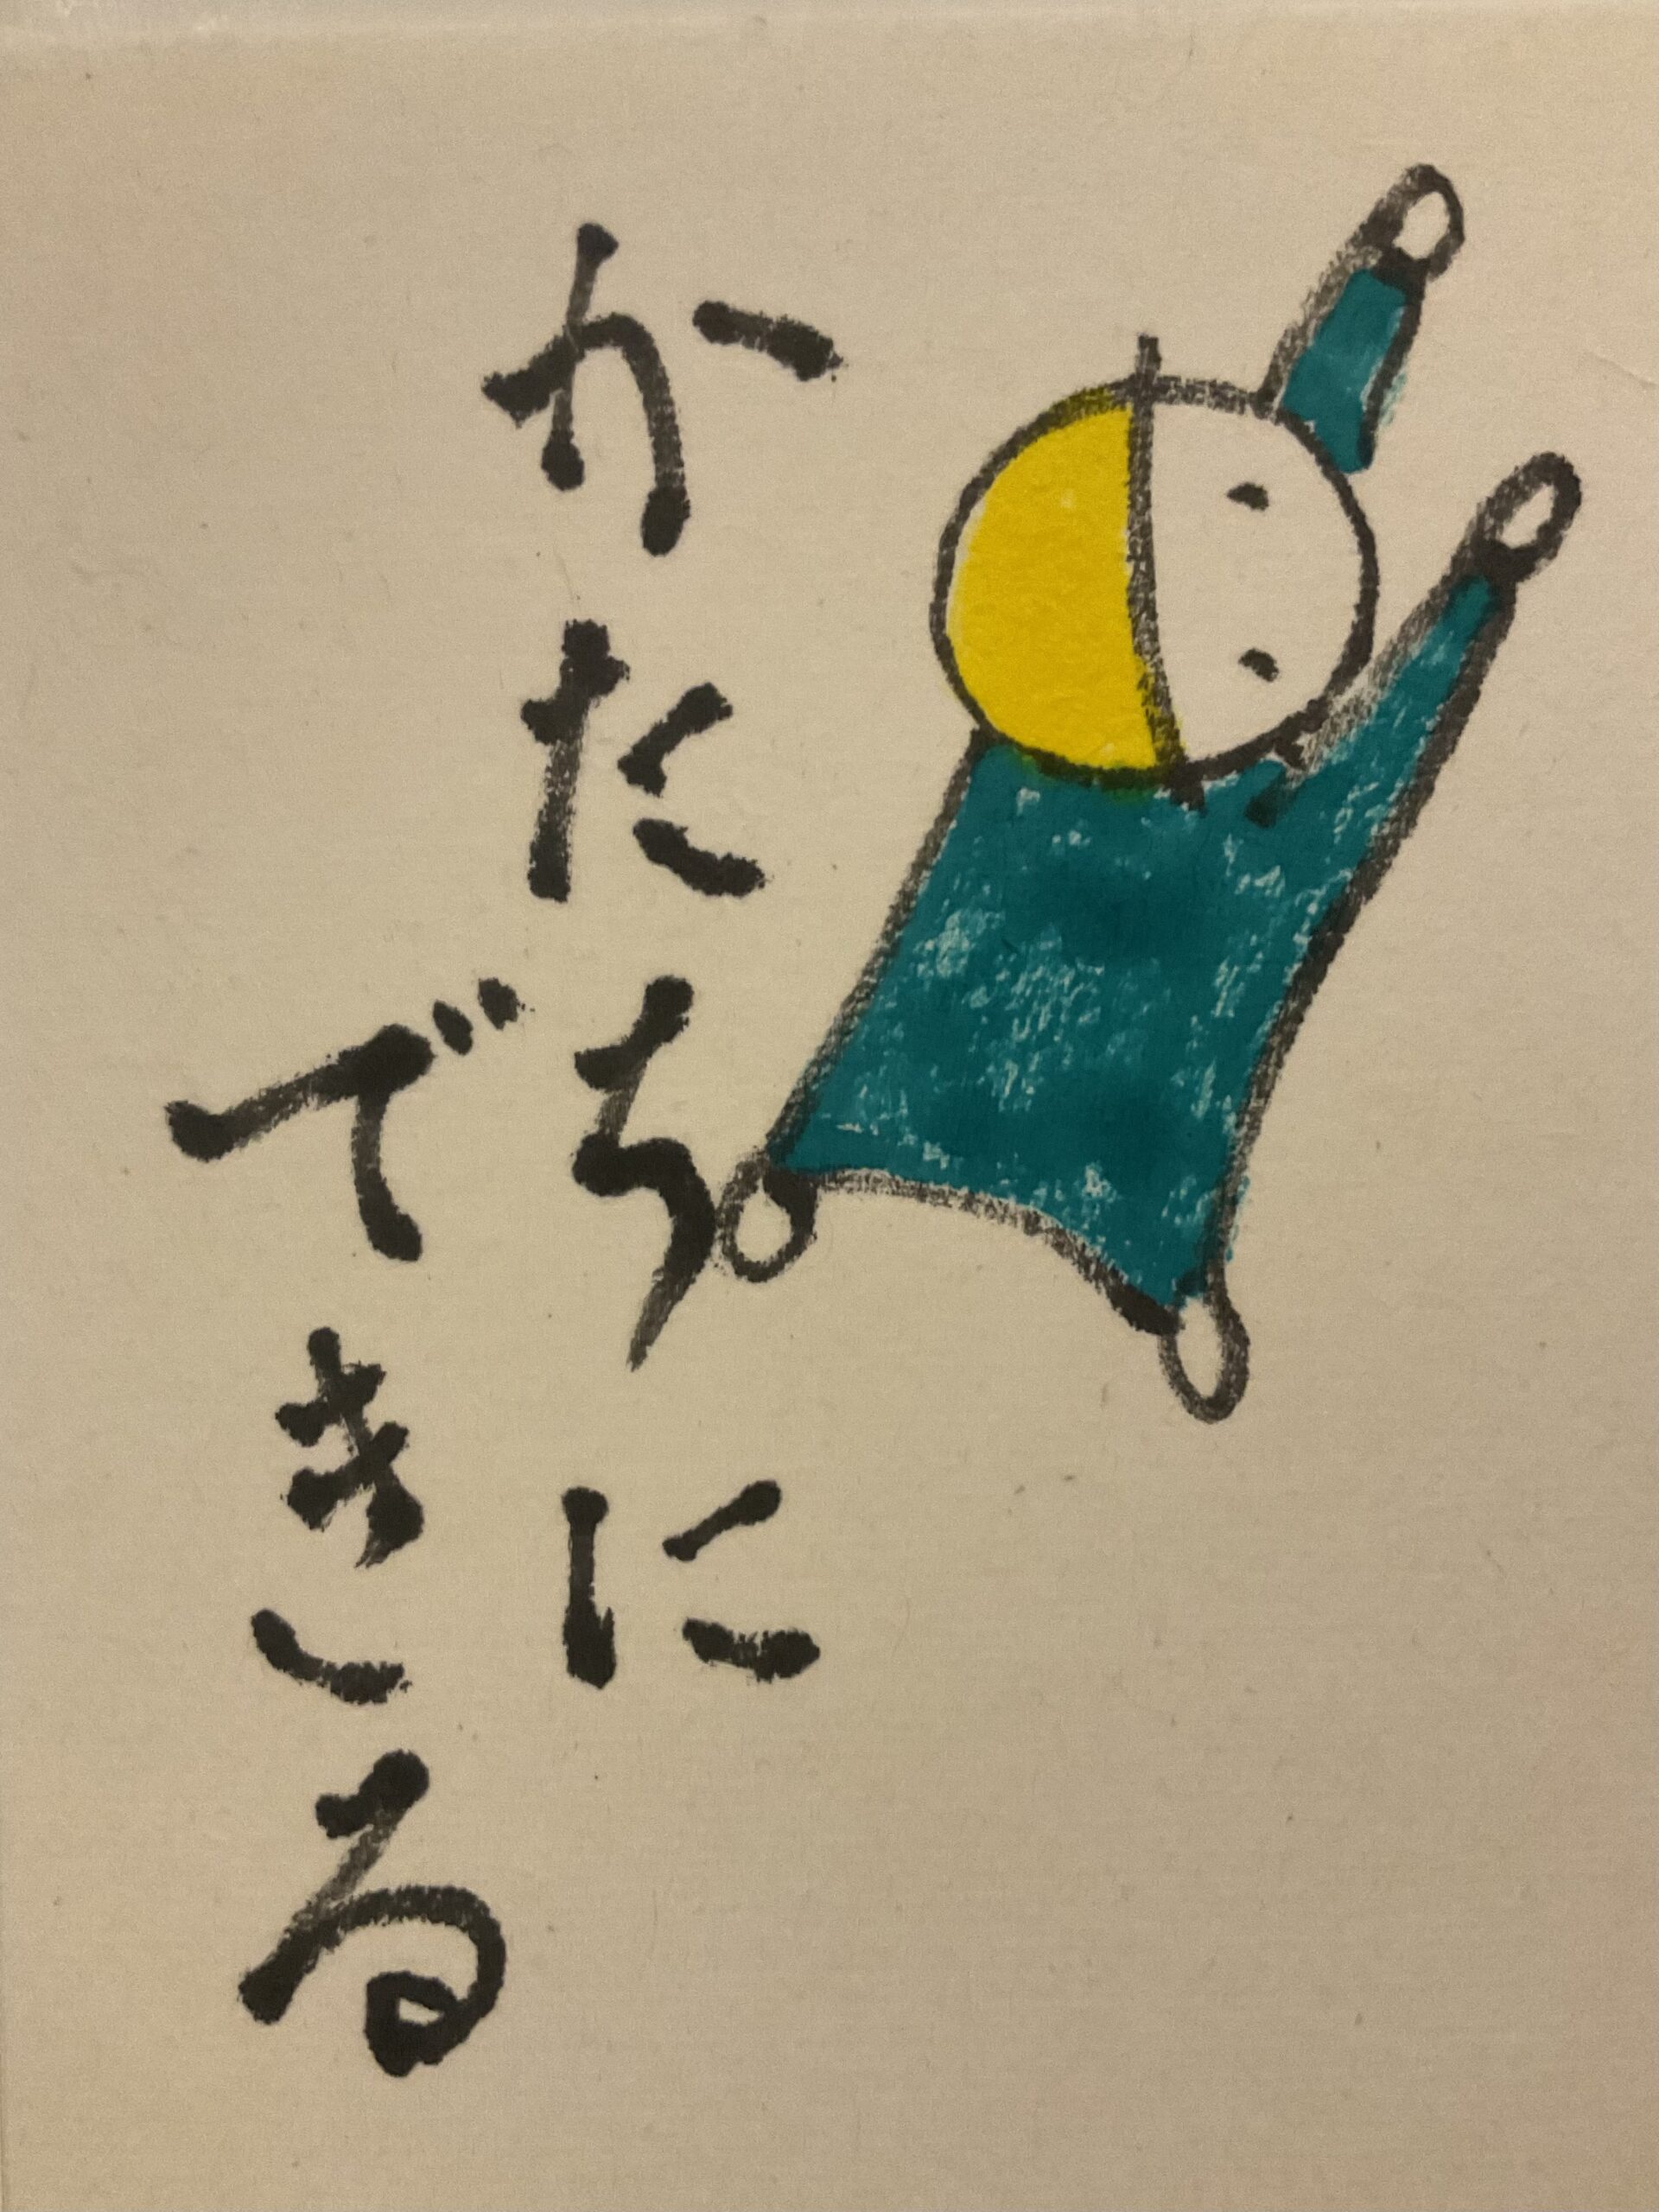 かたちに
できる